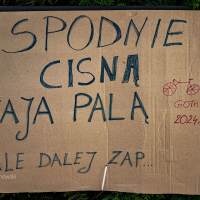 SPODNIE
CISNĄ
JAJA PALĄ
ALE DALEJ ZAP...
GOTH
2024